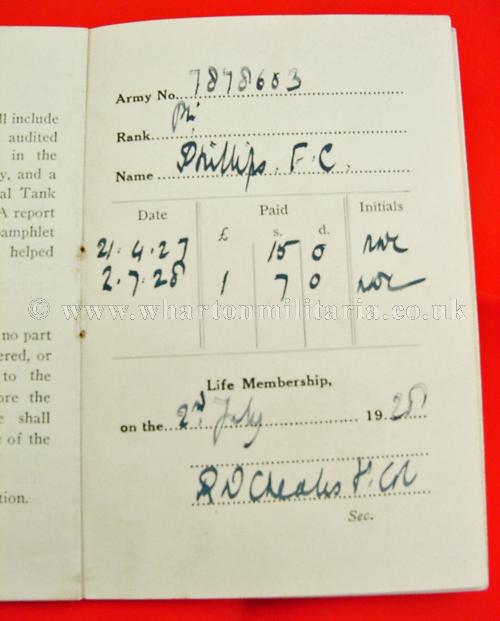 ll include
audited
in the
y, and a
al Tank
A report
pamphlet
helped
no part
ered, or
to the
ore the
e shall
of the
tion.
Army No. 7878603
Rank
Name Phillips. F. C.
Date Paid Initials
£ s. d.
21.4.27 15 0
2.7.28 1 7 0
© www.whartonmilitaria.co.uk
Life Membership,
on the 2nd July 1928
Sec.